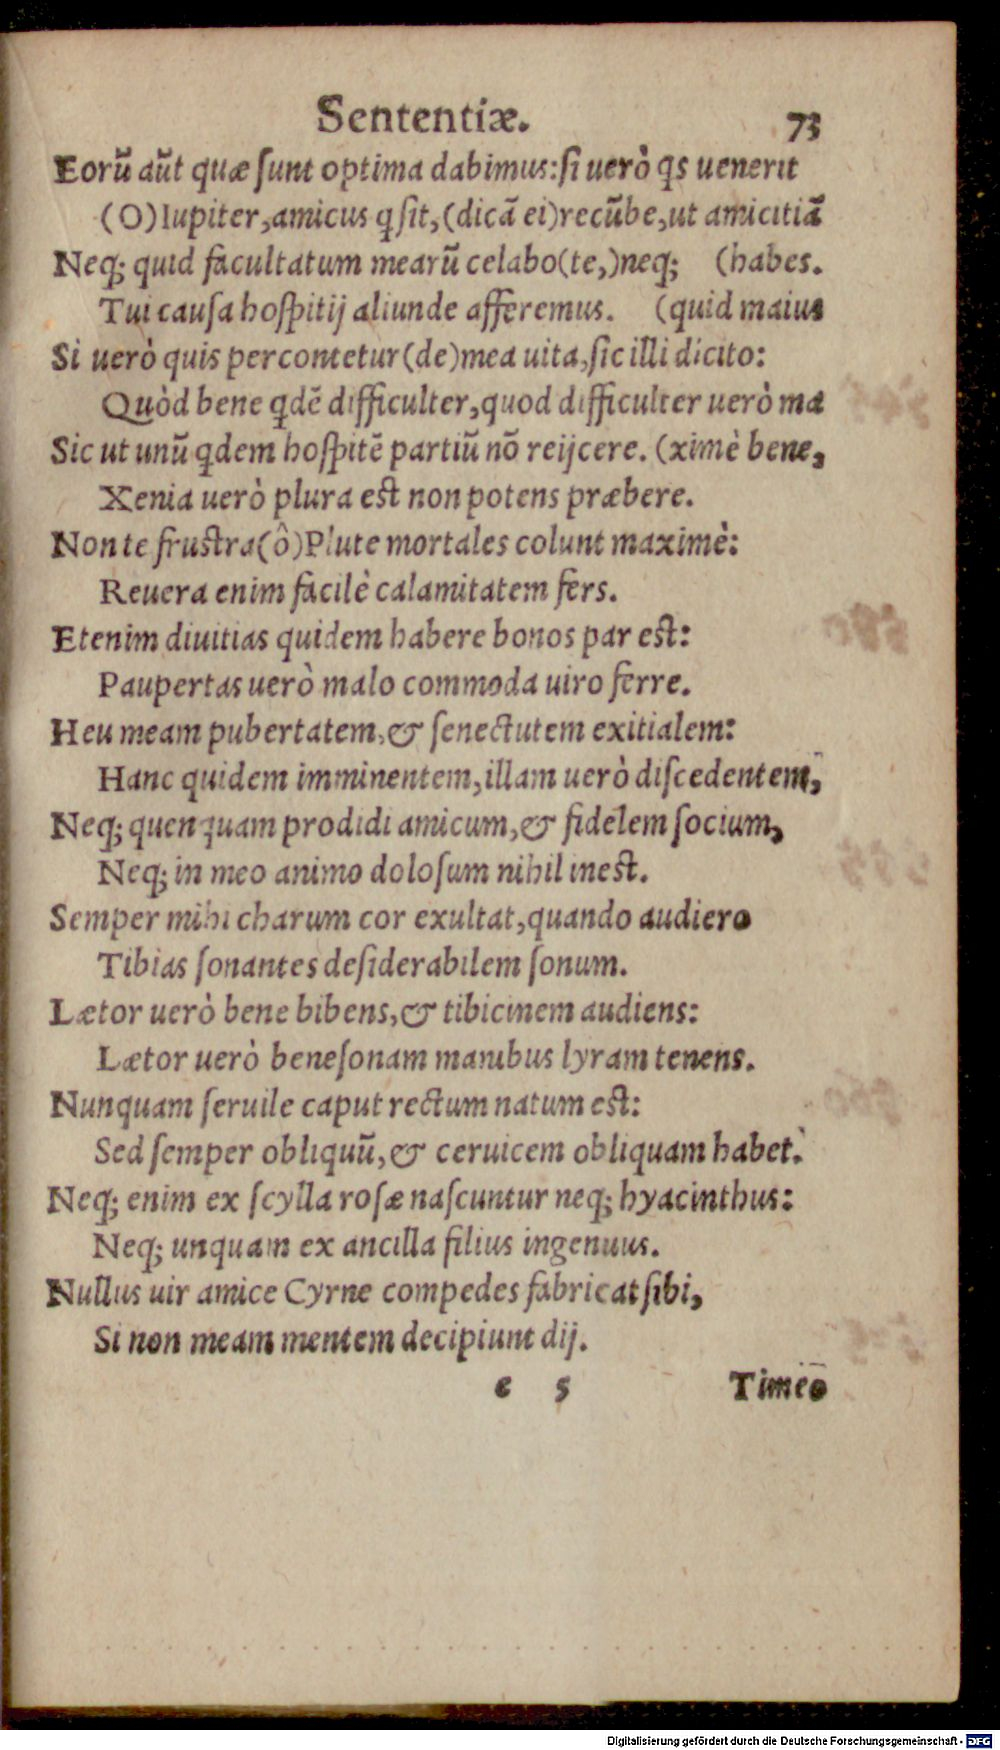 Sententiæ. 73
Eorũ aũt quæ ſunt optima dabimus: ſi uerò qs uenerit
(O) Iupiter, amicus q ſit, (dicã ei) recũbe, ut amicitiã
Neq; quid facultatum mearũ celabo (te,) neq; (habes.
Tui cauſa hoſpitij aliunde afferemus. (quid maius
Si uerò quis percontetur (de) mea uita, ſic illi dicito:
Quòd bene qdẽ difficulter, quod difficulter uerò ma
Sic ut unũ qdem hoſpitẽ partiũ nõ reijcere. (ximè bene,
Xenia uerò plura est non potens præbere.
Non te frustra (ô) Plute mortales colunt maximè:
Reuera enim facilè calamitatem fers.
Etenim diuitias quidem habere bonos par est:
Paupertas uerò malo commoda uiro ferre.
Heu meam pubertatem, & ſenectutem exitialem:
Hanc quidem imminentem, illam uerò diſcedentem,
Neq; quenquam prodidi amicum, & fidelem ſocium,
Neq; in meo animo doloſum nihil inest.
Semper mihi charum cor exultat, quando audiero
Tibias ſonantes deſiderabilem ſonum.
Lætor uerò bene bibens, & tibicinem audiens:
Lætor uerò beneſonam manibus lyram tenens.
Nunquam ſeruile caput rectum natum est:
Sed ſemper obliquũ, & ceruicem obliquam habet.
Neq; enim ex ſcylla roſæ naſcuntur neq; hyacinthus:
Neq; unquam ex ancilla filius ingenuus.
Nullus uir amice Cyrne compedes fabricat ſibi,
Si non meam mentem decipiunt dij.
e 5 Timeo
Digitalisierung gefördert durch die Deutsche Forschungsgemeinschaft - DFG